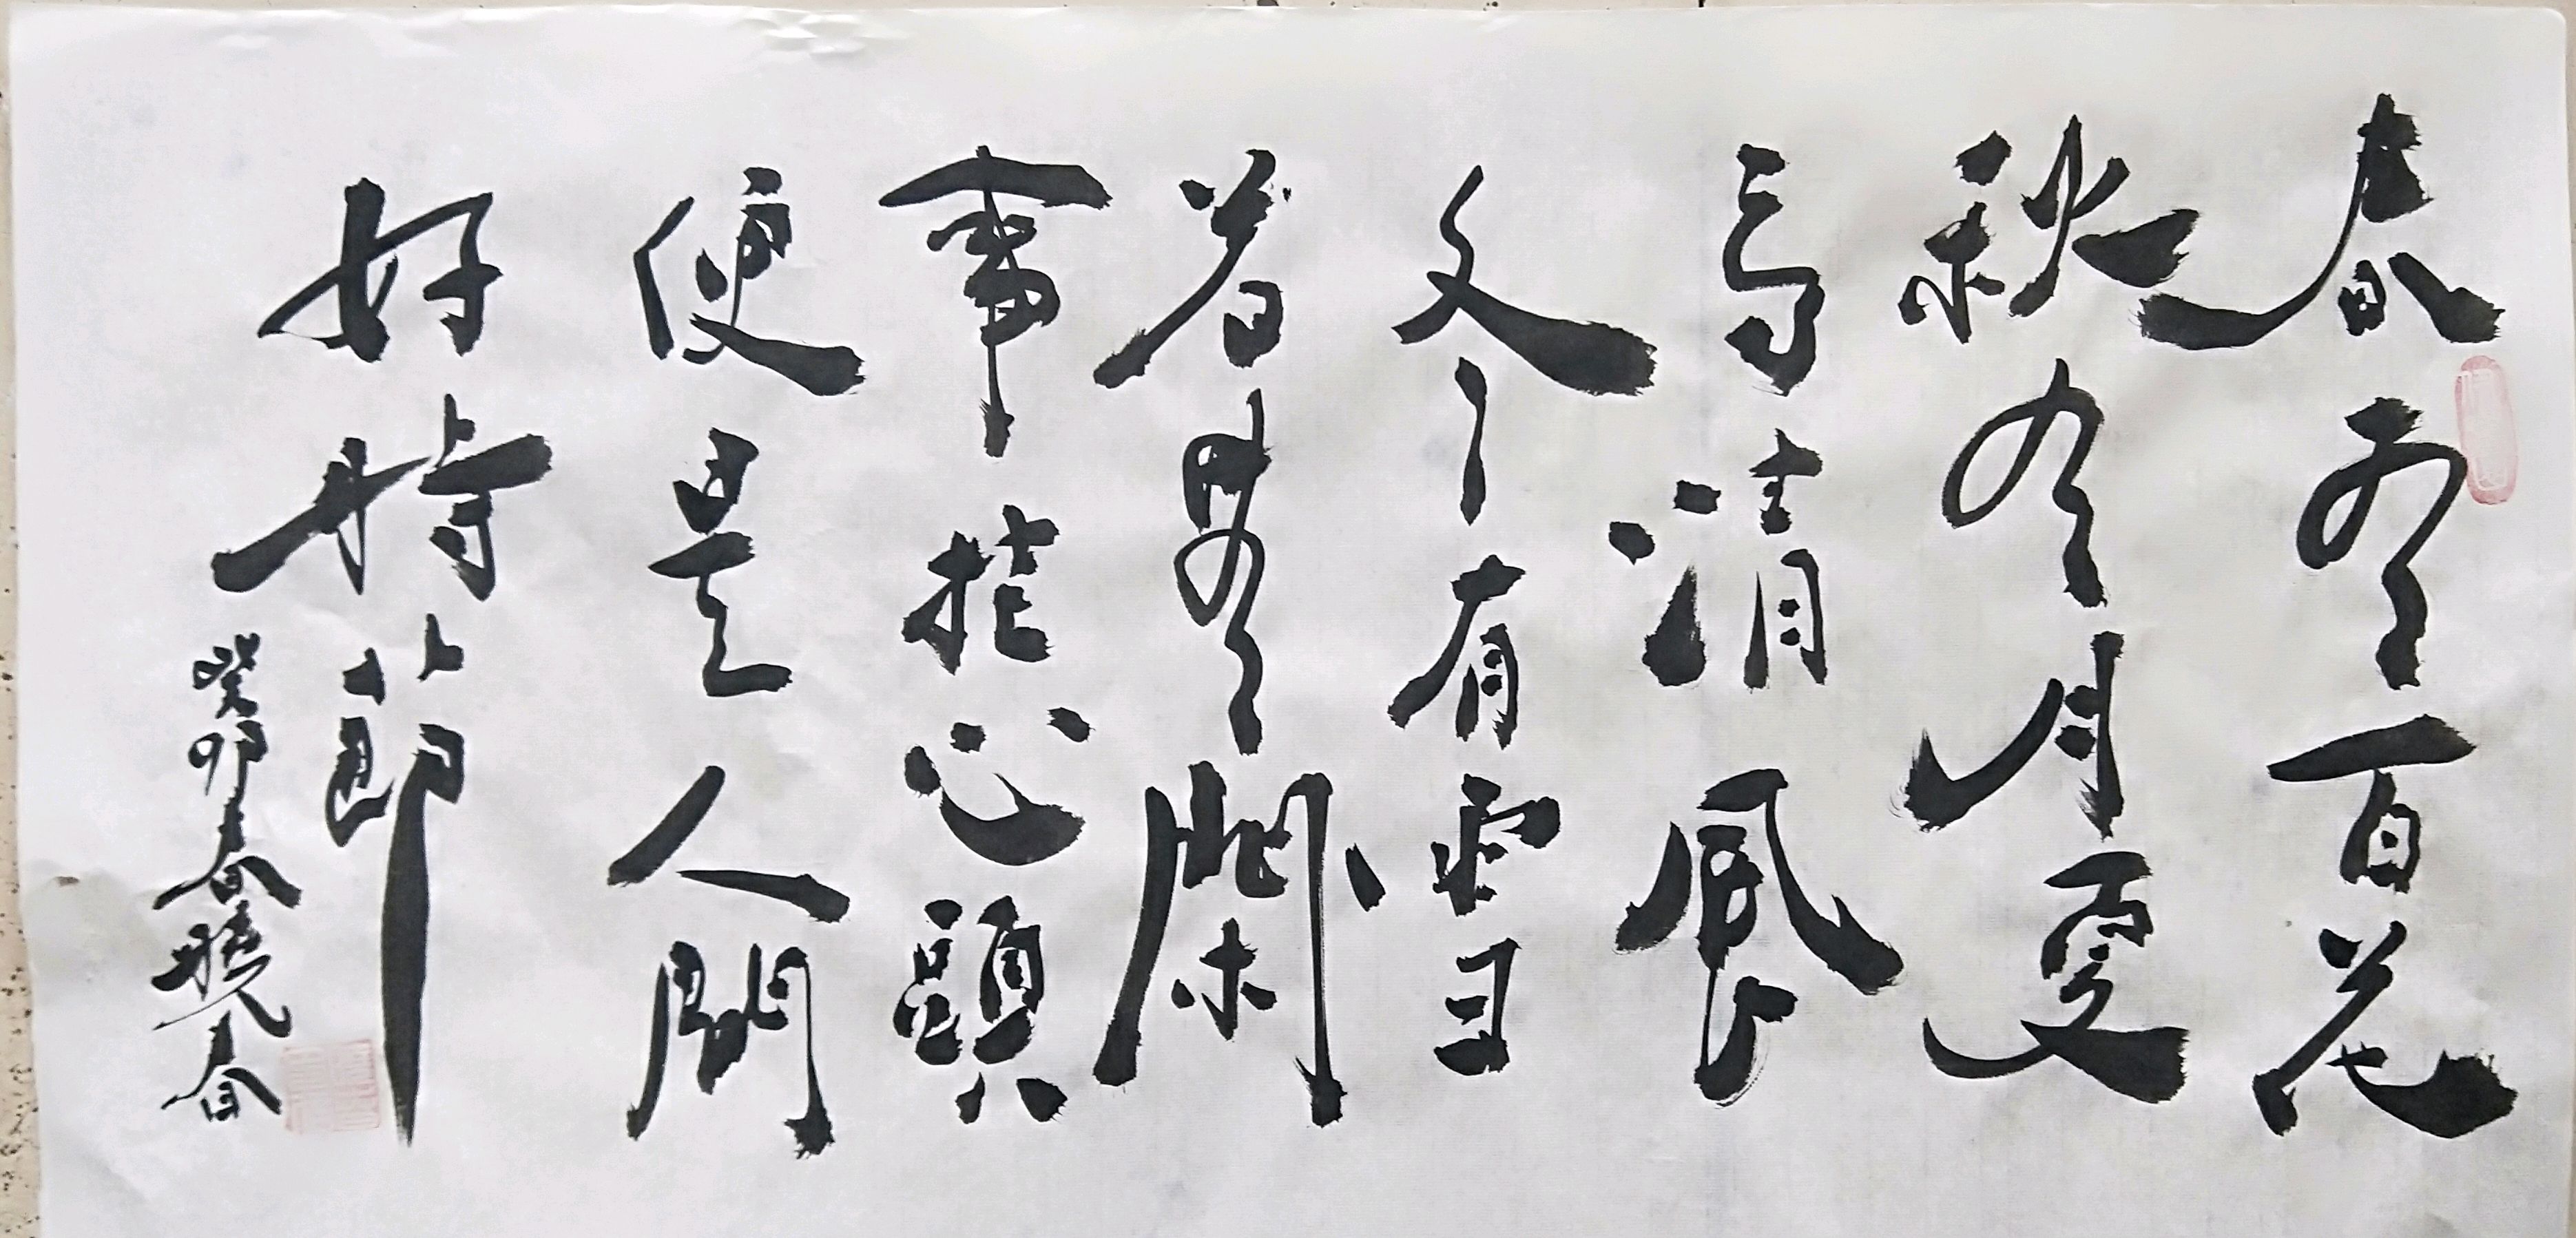 春有百花
秋有月夏
有清風
冬有雪
若無閑
事挂心頭
便是人間
好時節
癸卯春曉春